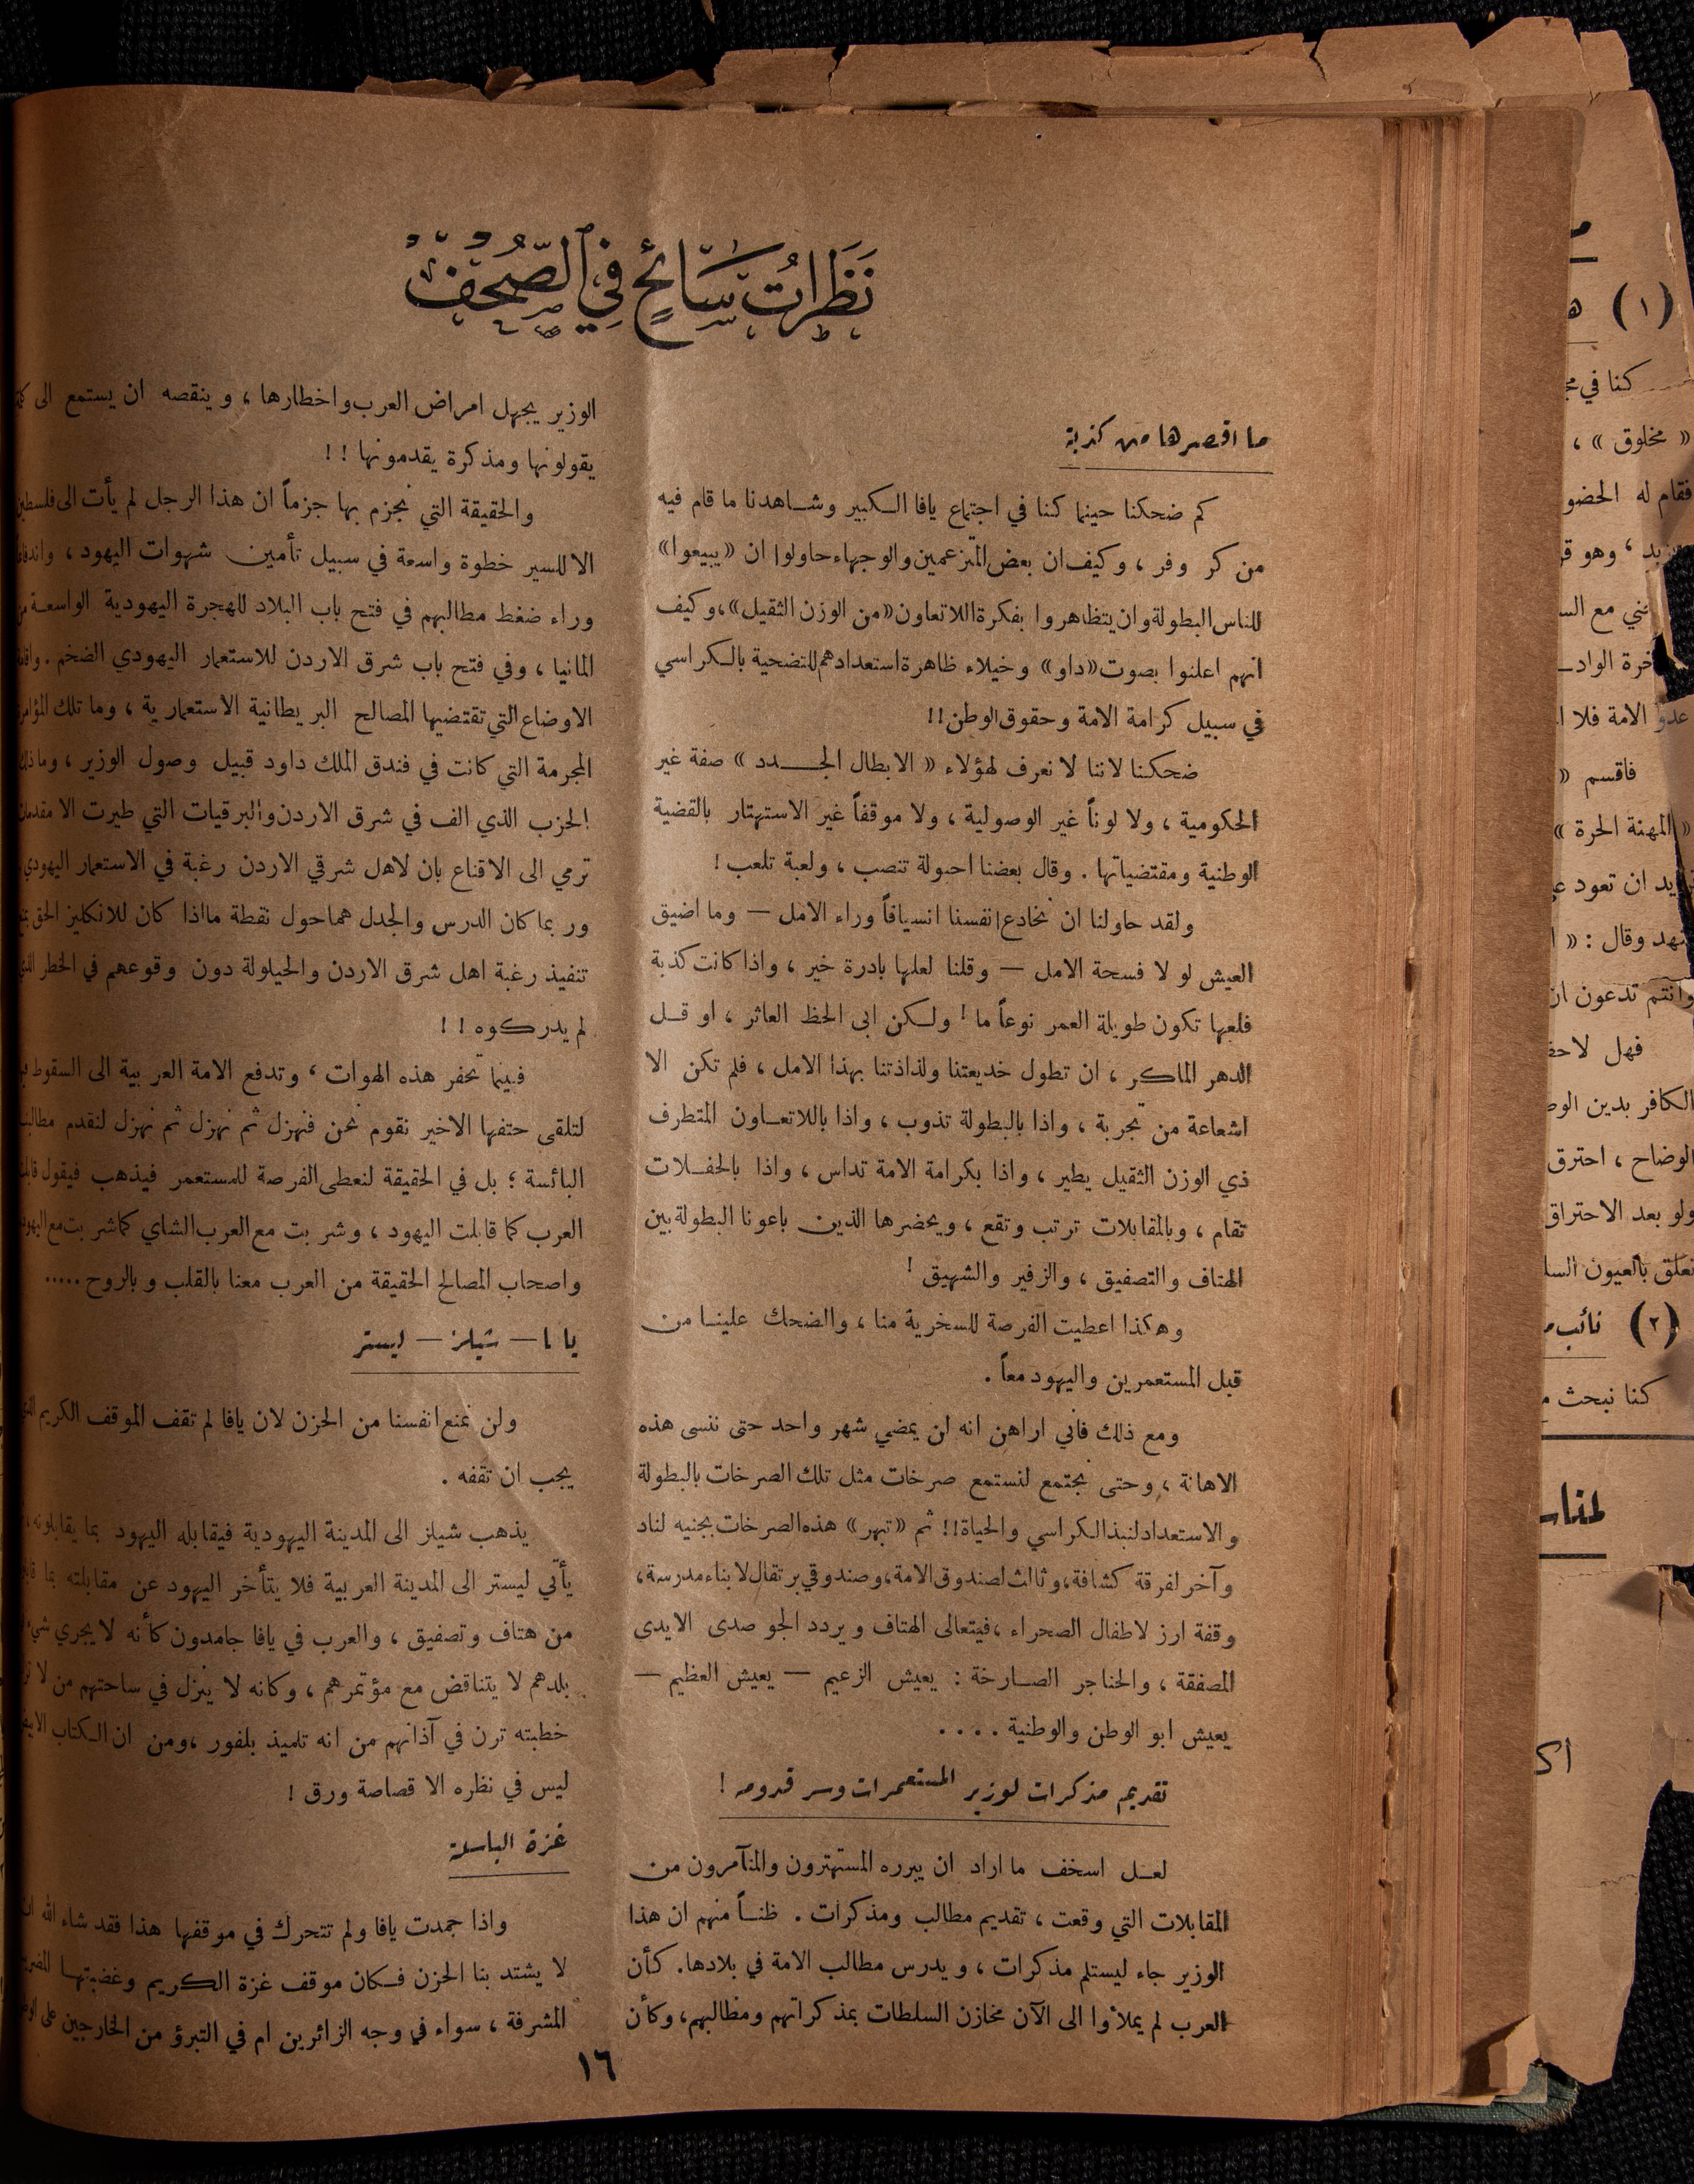 نَظَرَاتُ سَائِحٍ فِي الصُّحُفِ
ما اقصرها من كذبة
كم ضحكنا حينما كنا في اجتماع يافا الكبير وشاهدنا ما قام فيه
من كر وفر ، وكيف ان بعض المتزعمين والوجهاء حاولوا ان «يبيعوا»
للناس البطولة وان يتظاهروا بفكرة اللاتعاون «من الوزن الثقيل» ، وكيف
انهم اعلنوا بصوت «داو» وخيلاء ظاهرة استعدادهم للتضحية بالكراسي
في سبيل كرامة الامة وحقوق الوطن !!
ضحكنا لاننا لا نعرف لهؤلاء « الابطال الجدد » صفة غير
الحكومية ، ولا لوناً غير الوصولية ، ولا موقفاً غير الاستهتار بالقضية
الوطنية ومقتضياتها . وقال بعضنا احبولة تنصب ، ولعبة تلعب !
ولقد حاولنا ان نخادع انفسنا انسياقاً وراء الامل — وما اضيق
العيش لو لا فسحة الامل — وقلنا لعلها بادرة خير ، واذا كانت كذبة
فلعلها تكون طويلة العمر نوعاً ما ! ولكن ابى الحظ العاثر ، او قل
الدهر الماكر ، ان تطول خديعتنا ولذاذتنا بهذا الامل ، فلم تكن الا
اشعاعة من تجربة ، واذا بالبطولة تذوب ، واذا باللاتعاون المتطرف
ذي الوزن الثقيل يطير ، واذا بكرامة الامة تداس ، واذا بالحفلات
تقام ، وبالمقابلات ترتب وتقع ، ويحضرها الذين باعونا البطولة بين
الهتاف والتصفيق ، والزفير والشهيق !
وهكذا اعطيت الفرصة للسخرية منا ، والضحك علينا من
قبل المستعمرين واليهود معاً .
ومع ذلك فاني اراهن انه لن يمضي شهر واحد حتى ننسى هذه
الاهانة ، وحتى نجتمع لنستمع صرخات مثل تلك الصرخات بالبطولة
والاستعداد لنبذ الكراسي والحياة !! ثم «تبهر» هذه الصرخات بجنيه لناد
وآخر لفرقة كشافة ، وثالث لصندوق الامة ، وصندوقي برتقال لابناء مدرسة ،
وقفة ارز لاطفال الصحراء ، فيتعالى الهتاف ويردد الجو صدى الايدي
المصفقة ، والحناجر الصارخة : يعيش الزعيم — يعيش العظيم —
يعيش ابو الوطن والوطنية . . . .
تقديم مذكرات لوزير المستعمرات وسر قدومه !
لعل اسخف ما اراد ان يبرره المستهترون والمتآمرون من
المقابلات التي وقعت ، تقديم مطالب ومذكرات . ظناً منهم ان هذا
الوزير جاء ليستلم مذكرات ، ويدرس مطالب الامة في بلادها . كأن
العرب لم يملأوا الى الآن مخازن السلطات بمذكراتهم ومطالبهم ، وكأن
الوزير يجهل امراض العرب واخطارها ، وينقصه ان يستمع الى
يقولونها ومذكرة يقدمونها ! !
والحقيقة التي نجزم بها جزماً ان هذا الرجل لم يأت الى فلسطين
الا للسير خطوة واسعة في سبيل تأمين شهوات اليهود ،
وراء ضغط مطالبهم في فتح باب البلاد للهجرة اليهودية الواسعة
المانيا ، وفي فتح باب شرق الاردن للاستعمار اليهودي الضخم .
الاوضاع التي تقتضيها المصالح البريطانية الاستعمارية ، وما تلك
المجرمة التي كانت في فندق الملك داود قبيل وصول الوزير ، وما ذلك
الحزب الذي الف في شرق الاردن والبرقيات التي طيرت الا
ترمي الى الاقناع بان لاهل شرقي الاردن رغبة في الاستعمار اليهودي
وربما كان الدرس والجدل هما حول نقطة ما اذا كان للانكليز الحق
تنفيذ رغبة اهل شرق الاردن والحيلولة دون وقوعهم في الخطر الذي
لم يدركوه ! !
فبينما تحفر هذه الهوات ، وتدفع الامة العربية الى السقوط
لتلقى حتفها الاخير نقوم نحن فنهزل ثم نهزل ثم نهزل لنقدم
البائسة ؛ بل في الحقيقة لنعطى الفرصة للمستعمر فيذهب فيقول
العرب كما قابلت اليهود ، وشربت مع العرب الشاي كما شربت مع اليهود
واصحاب المصالح الحقيقة من العرب معنا بالقلب وبالروح .....
يافا — شيلز — ليستر
ولن نمنع انفسنا من الحزن لان يافا لم تقف الموقف الكريم الذي
يجب ان تقفه .
يذهب شيلز الى المدينة اليهودية فيقابله اليهود بما يقابلونه ،
يأتي ليستر الى المدينة العربية فلا يتأخر اليهود عن مقابلته بما
من هتاف وتصفيق ، والعرب في يافا جامدون كأنه لا يجري شيء
بلدهم لا يتناقض مع مؤتمرهم ، وكانه لا ينزل في ساحتهم من لا
خطبته ترن في آذانهم من انه تلميذ بلفور ، ومن ان الكتاب
ليس في نظره الا قصاصة ورق !
غزة الباسلة
واذا جمدت يافا ولم تتحرك في موقفها هذا فقد شاء الله ان
لا يشتد بنا الحزن فكان موقف غزة الكريم وغضبتها
المشرفة ، سواء في وجه الزائرين ام في التبرؤ من الخارجين على
١٦
(١)
كنا في
« مخلوق » ،
فقام له
وهو
مع
الامة فلا
فاقسم »
« المهنة الحرة »
ان تعود
وقال : «
وانتم تدعون ان
فهل
الكافر بدين
الوضاح ، احترق
ولو بعد الاحتراق
بالعيون
(٢) نائب
كنا نبحث